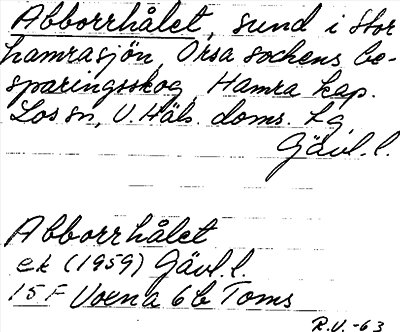 Abborrhålet, sund i Stor
hamrasjön, Orsa sockens be-
sparingsskog, Hamra kap.
Los sn, V. Häls. doms. tg,
Gävl. l.
Abborrhålet
ek (1959) Gävl. l.
15 F Voxna 6b Toms
R.V. -63